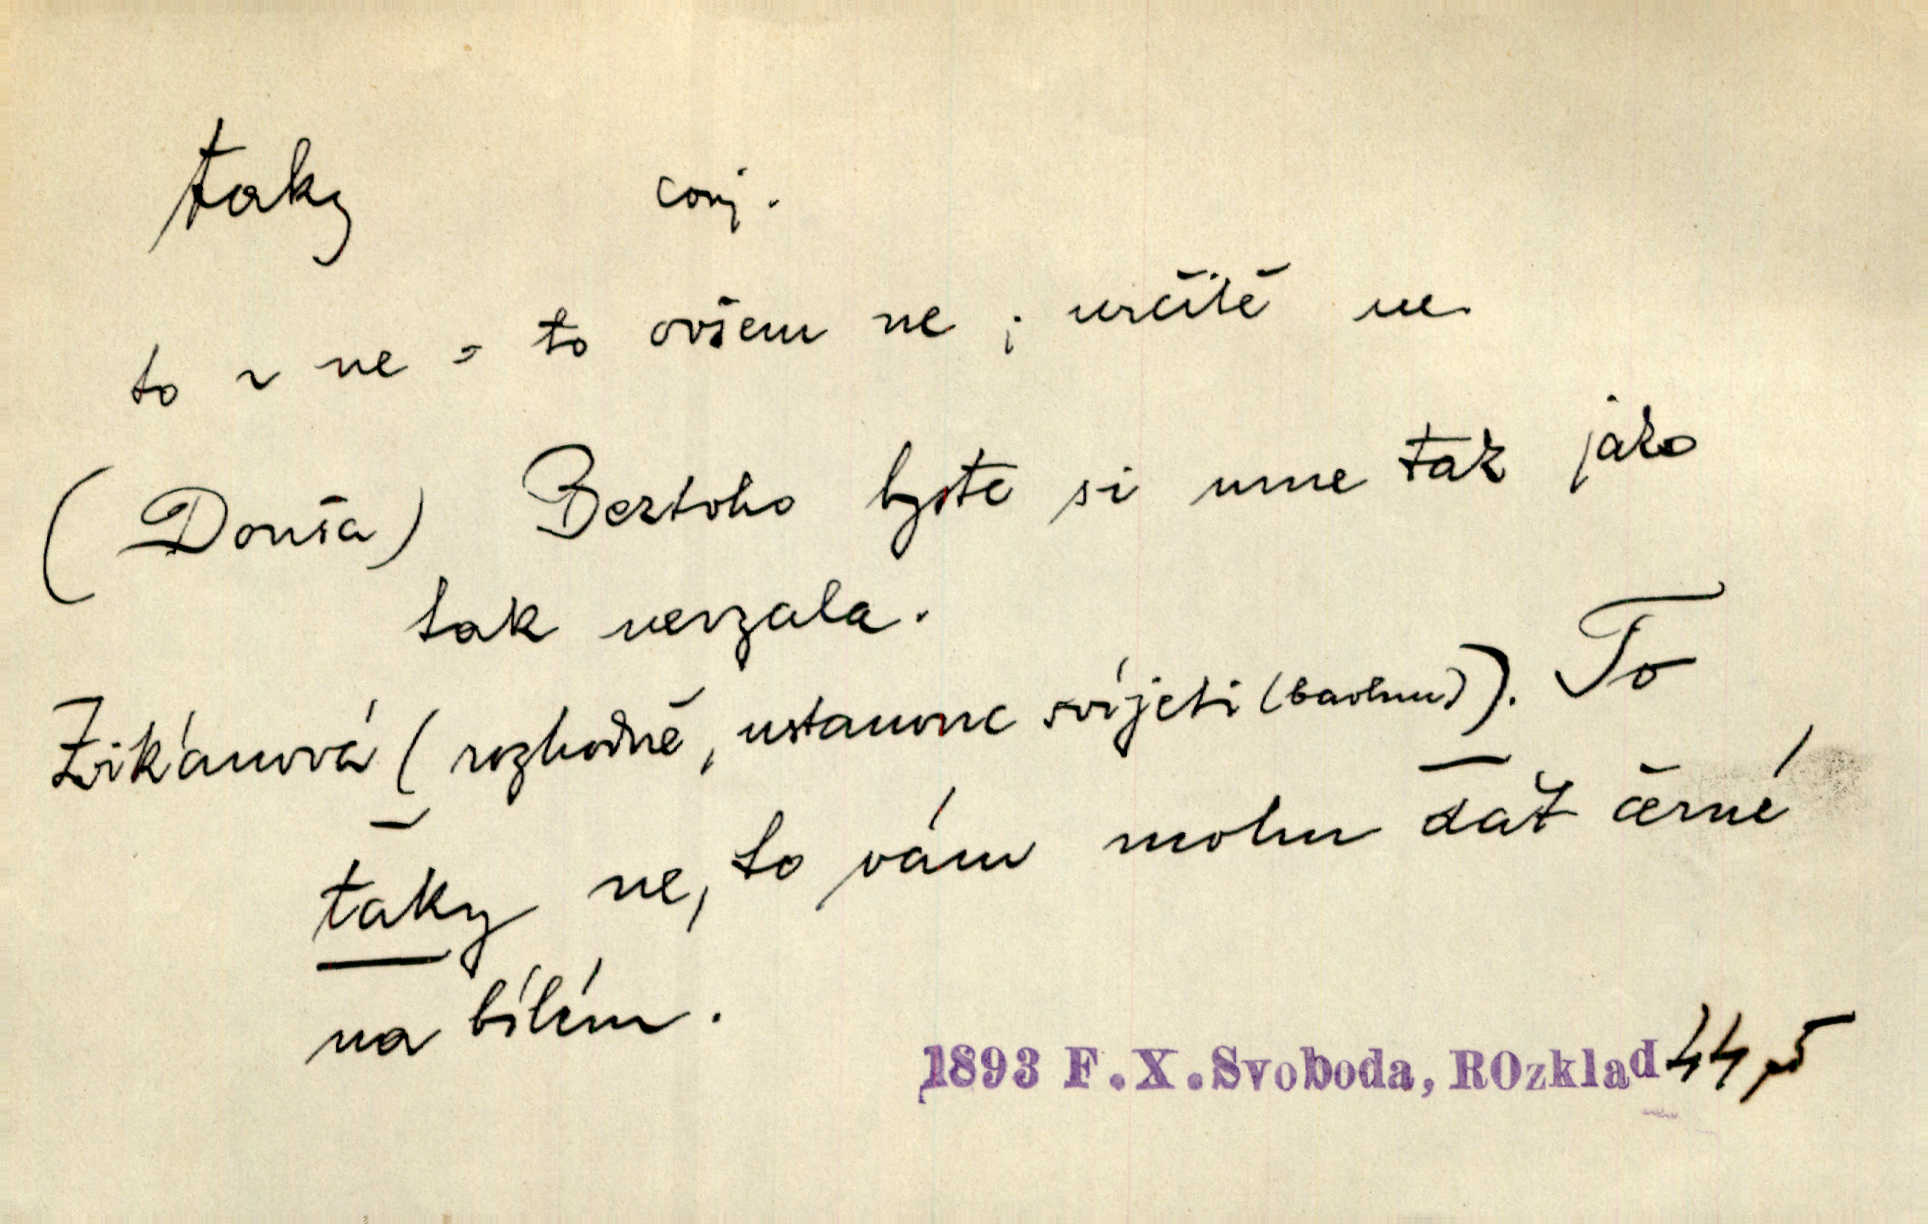 taky conj.
to ~ ne = to ovšem ne ; určitě ne.
(Donša) Beztoho byste si mne tak jako
tak nevzala.
Zikánová (rozhodně, ustanouc svíjeti (bavlnu)). To
taky ne, to vám mohu dát černé
na bílém.
1893 F.X.Svoboda, ROzklad 44,5